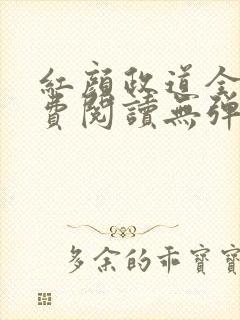 紅顏政道全
費閱讀無彈
多余的乖寶寶